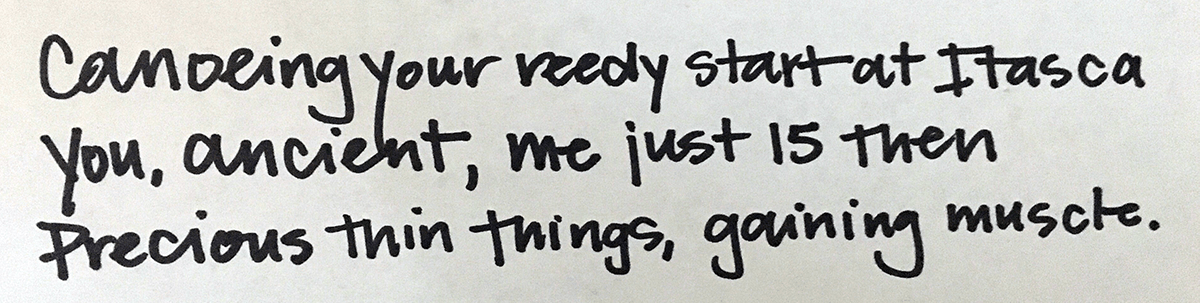 Canoeing your reedy start at Itasca
You, ancient, me just 15 then
Precious thin things, gaining muscle.